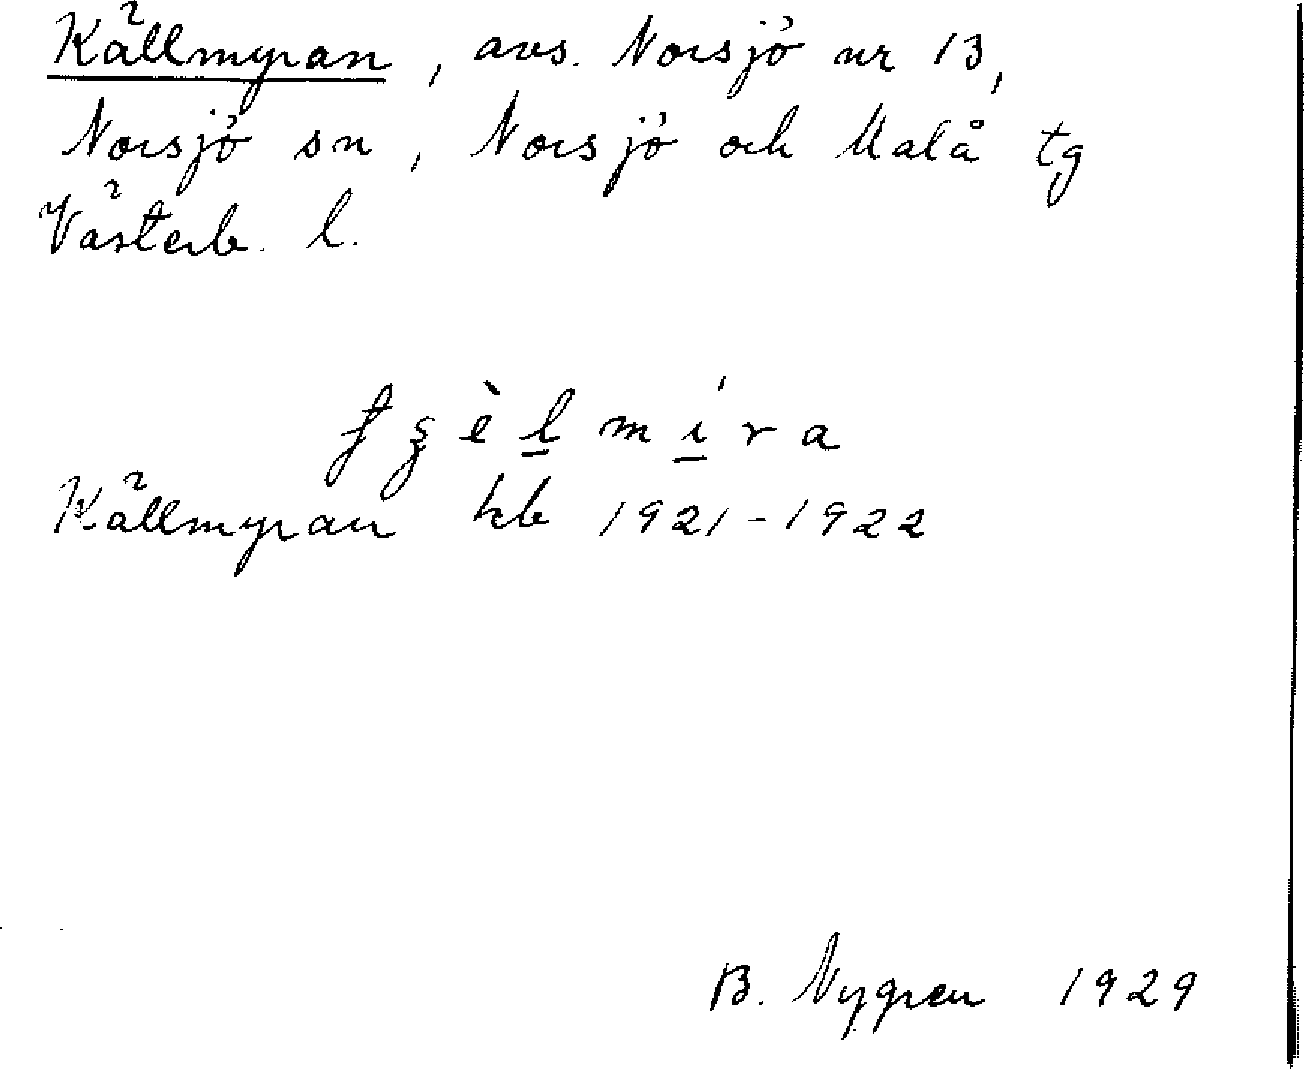 Källmyran, avs. Norsjö nr 13,
Norsjö sn, Norsjö och Malå tg
Västerb. l.
Källmyran kb 1921-1922
B. Nygren 1929